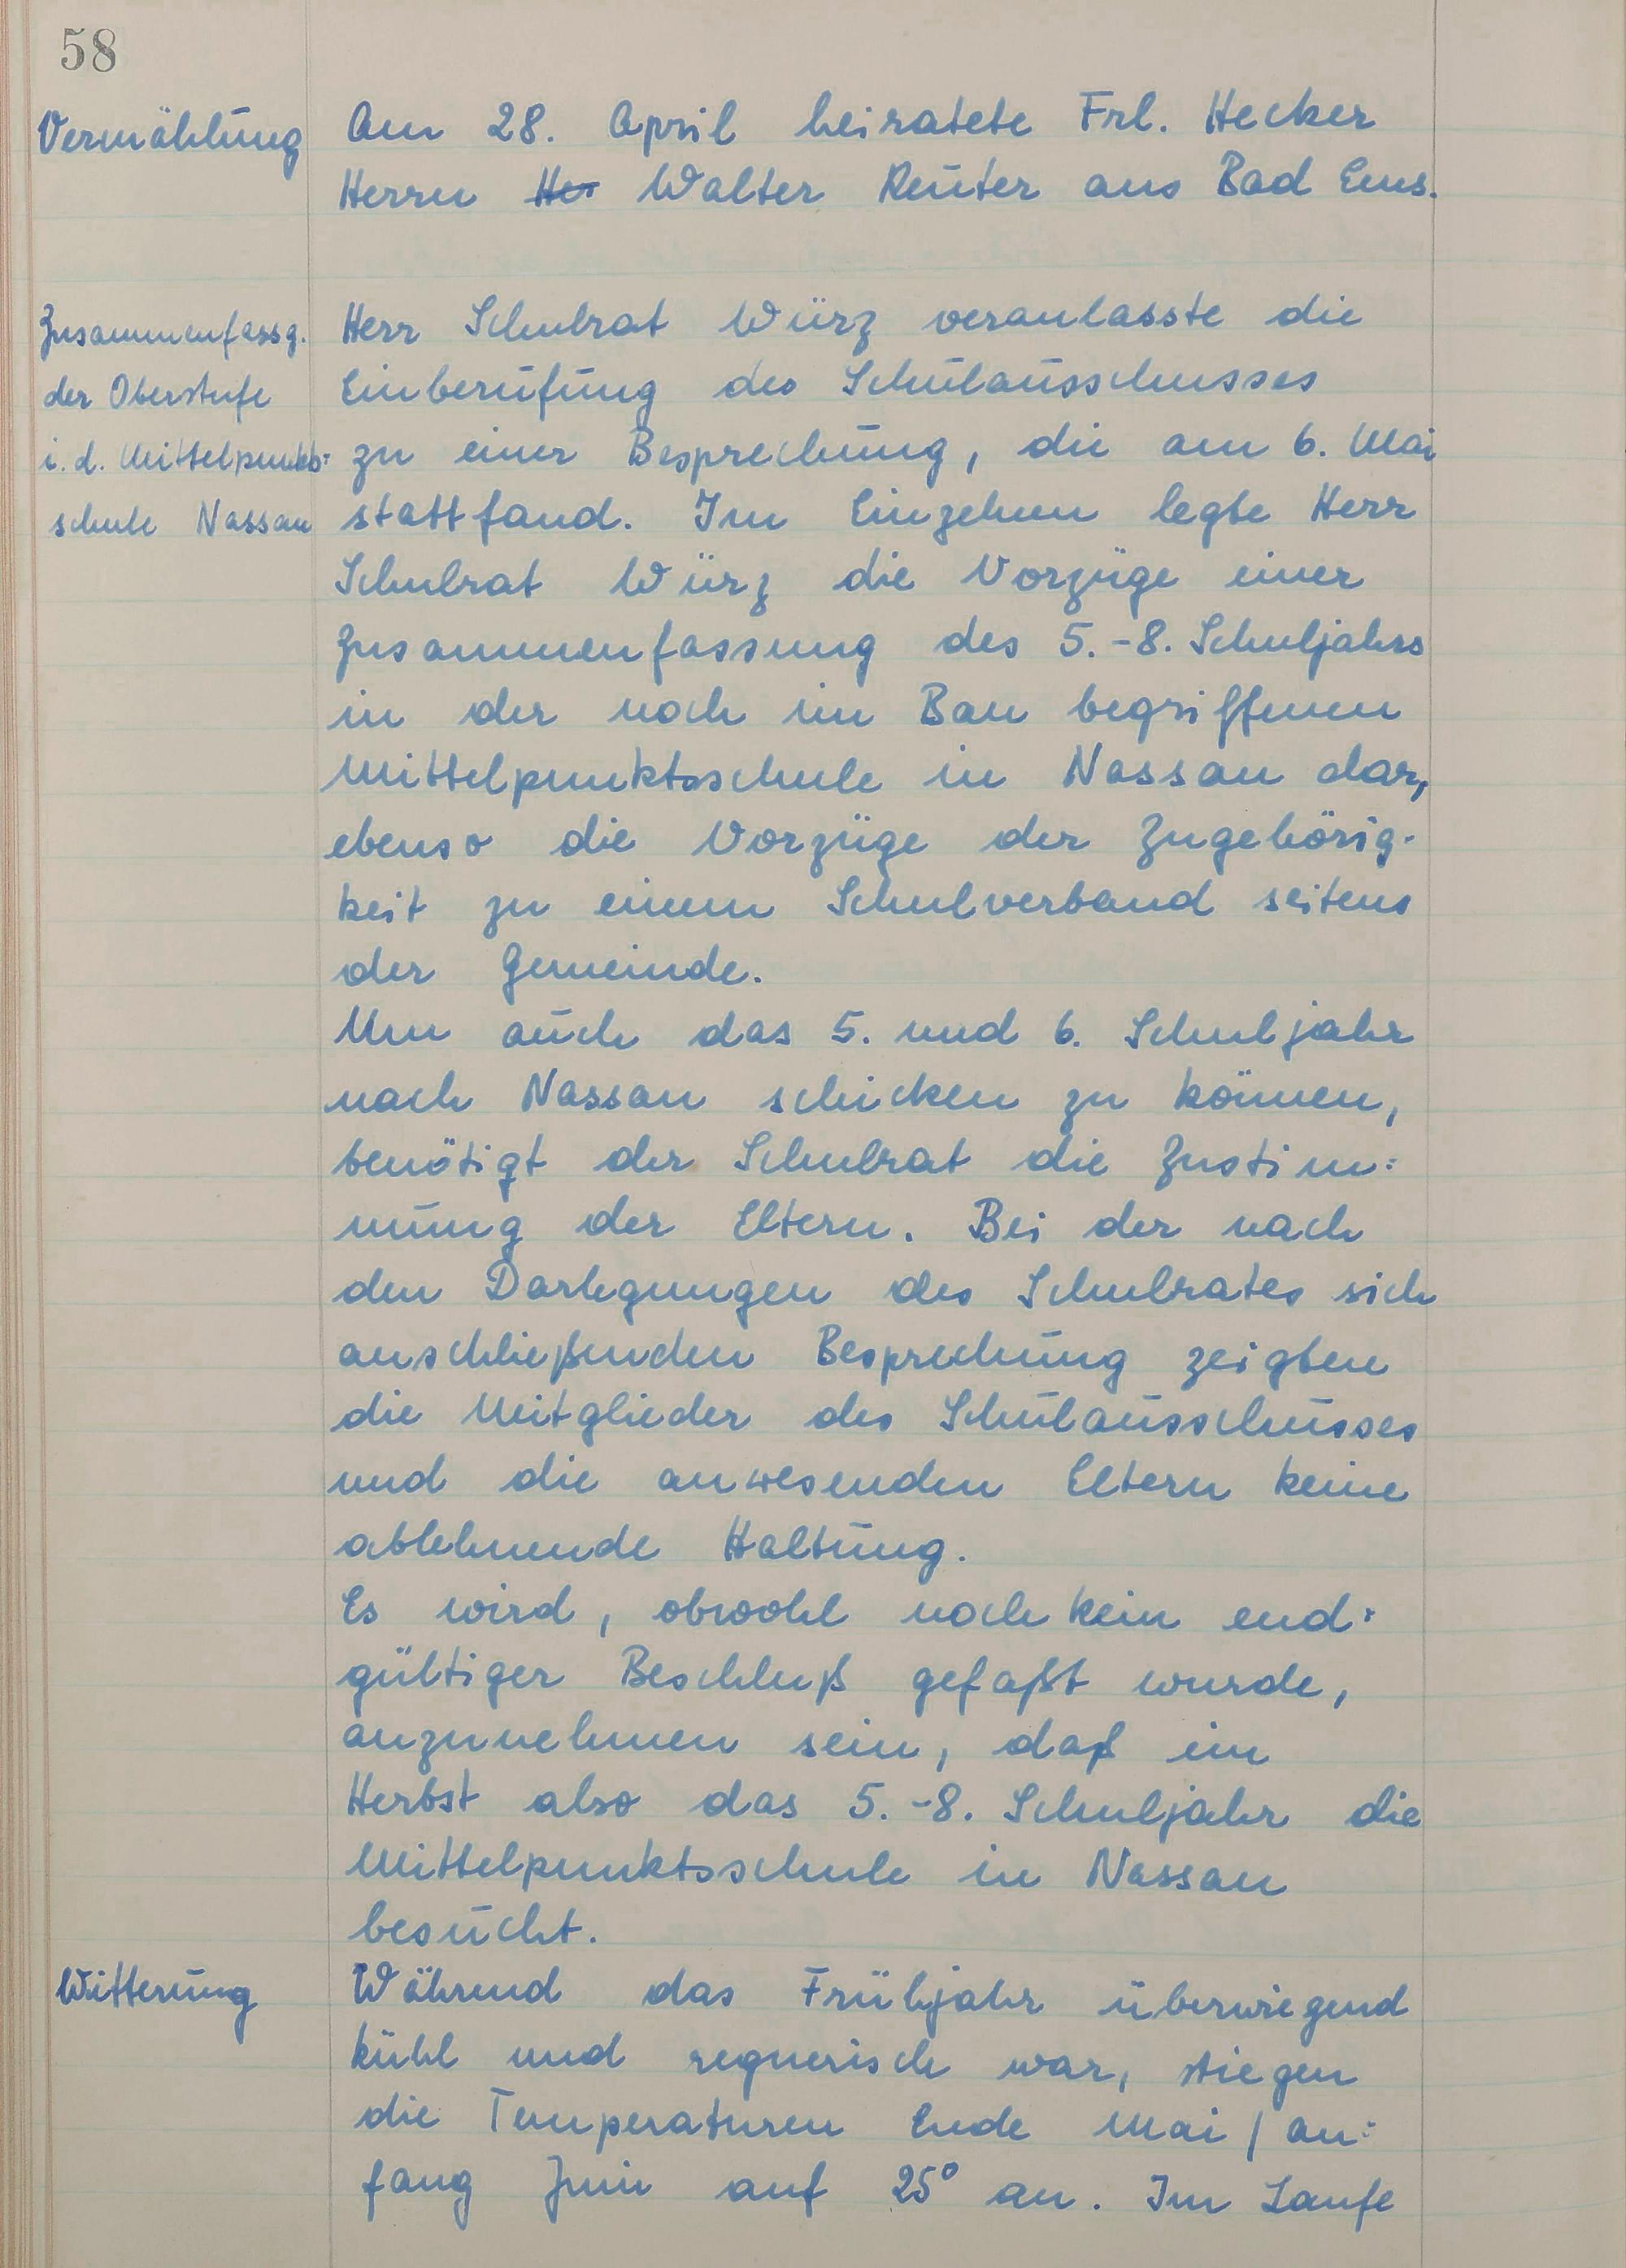 58
Vermählung
Am 28. April heiratete Frl. Hecker
Herrn Her Walter Reuter aus Bad Ems.
Zusammenfassg.
der Oberstufe
i. d. Mittelpunkts-
schule Nassau
Herr Schulrat Würz veranlasste die
Einberufung des Schulausschusses
zu einer Besprechung, die am 6. Mai
stattfand. Im Einzelnen legte Herr
Schulrat Würz die Vorzüge einer
Zusammenfassung des 5.-8. Schuljahrs
in der noch im Bau begriffenen
Mittelpunktsschule in Nassau dar,
ebenso die Vorzüge der Zugehörig-
keit zu einem Schulverband seitens
der Gemeinde.
Um auch das 5. und 6. Schuljahr
nach Nassau schicken zu können,
benötigt der Schulrat die Zustim-
mung der Eltern. Bei der nach
den Darlegungen des Schulrates sich
anschließenden Besprechung zeigten
die Mitglieder des Schulausschusses
und die anwesenden Eltern keine
ablehnende Haltung.
Es wird, obwohl noch kein end-
gültiger Beschluß gefaßt wurde,
anzunehmen sein, daß im
Herbst also das 5.-8. Schuljahr die
Mittelpunktsschule in Nassau
besucht.
Witterung
Während das Frühjahr überwiegend
kühl und regnerisch war, stiegen
die Temperaturen Ende Mai / An-
fang Juni auf 25° an. Im Laufe